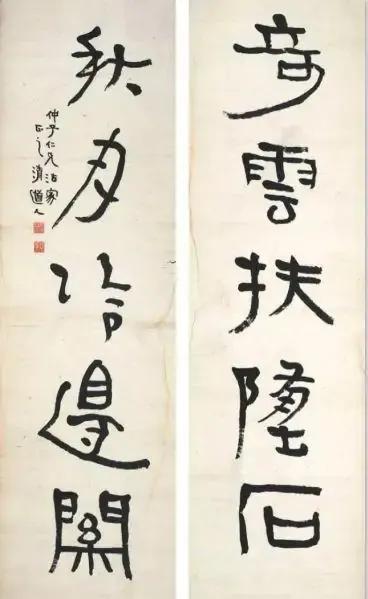 奇雲扶隆石
秋月冷邊關
仲子仁兄法家
正之 清道人